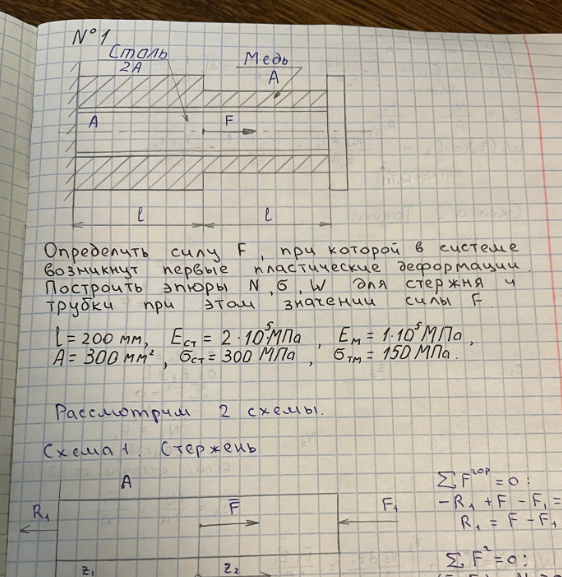 N°1
Сталь
2A
Медь
A
A
F
l
l
Определить силу F, при которой в системе
возникнут первые пластические деформации.
Построить эпюры N, б, W для стержня и
трубки при этом значении силы F.
l = 200 мм, Eст = 2·10⁵ МПа, Eм = 1·10⁵ МПа,
A = 300 мм², бст = 300 МПа, бтм = 150 МПа.
Рассмотрим 2 схемы.
Схема 1. Стержень
A
R₁
F̅
F₁
z₁
z₂
ΣFгор = 0:
-R₁ + F - F₁ =
R₁ = F - F₁
ΣFz = 0: